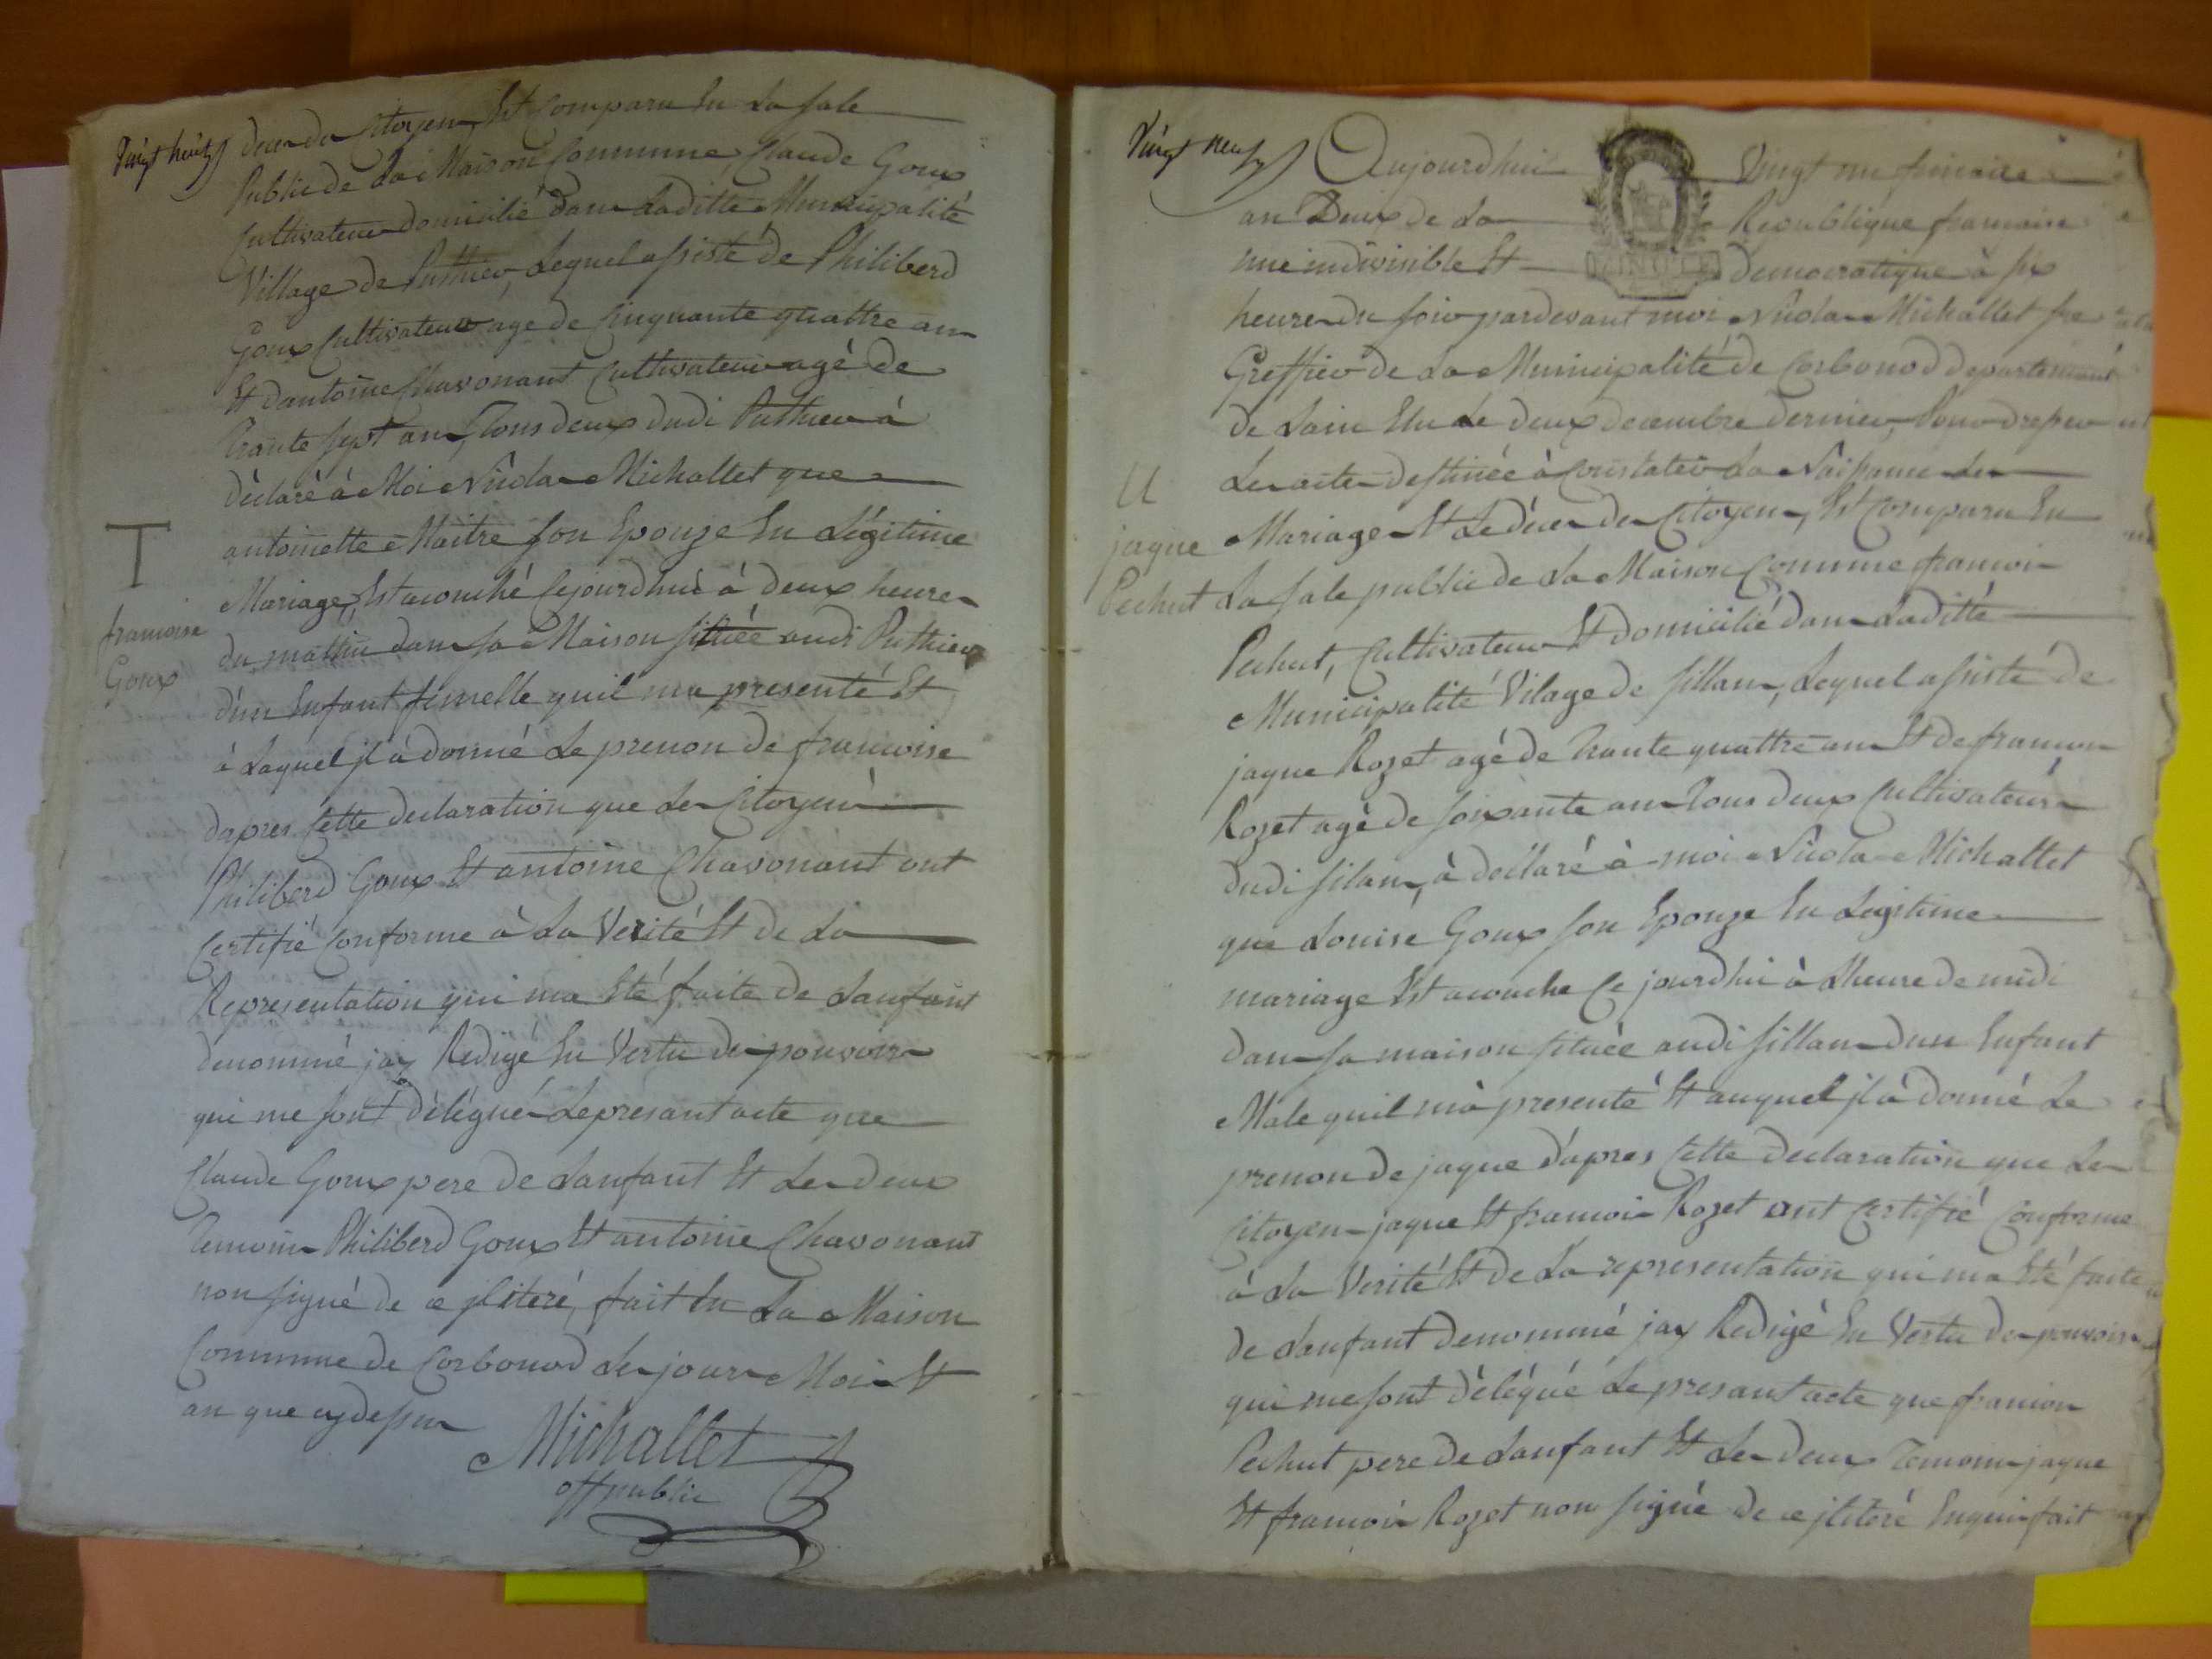 Vingt huit
deces des Citoyens Est Comparu En La sale
Public de La Maison Commune Claude Goux
Cultivateur domicilié dans Laditte Municipalité
Village de Puthier, Lequel assisté de Philiberd
Goux Cultivateur agé de Cinquante quattre ans
Et dantoine Chavonant Cultivateur agé de
Trante sept ans, Tous deux dudi Puthier à
déclaré à Moi Nicolas Michallet que
T
antoinette Maitre son Epouze En Légitime
Mariage, Est acouché Cejourdhui à deux heures
francoise
du mattin dans sa Maison sittuée audi Puthier
Goux
d'un Enfant fimelle quil ma presenté Et
à Laquel jl à donné Le prenon de francoise
dapres Cette declaration que Les Citoyens
Philiberd Goux Et antoine Chavonant ont
Certifié Conforme à La Verité Et de La
Representation qui ma Eté faite de Lanfant
denommé jay Redigé En Vertu des pouvoirs
qui me sont délégués Le presant acte que
Claude Goux pere de Lanfant Et Les deux
Temoins Philiberd Goux Et antoine Chavonant
non signé de ce jliteré, fait En La Maison
Commune de Corbonod Les jours Mois Et
an que cy dessus
Michallet
off public
Vingt neuf
Aujourdhui Vingt un frimaire
an Deux de La Republique francoise
une indivisible Et democratique à six
heures du soir pardevant moi Nicolas Michallet
Greffier de La Municipalité de Corbonod departemant
de Lain Elu Le deux decembre dernier, Pour dresser
U
Les actes destinée à Constater La Naissance Les
jaque
Mariages Et Le déces des Citoyens, Est Comparu En
Pechut
La sale public de La Maison Commune francois
Pechut, Cultivateur Et domicilié dans Laditté
Municipalité Vilage de sillans, Lequel assisté de
jaque Rozet agé de Trante quattre ans Et de francois
Rozet agé de soixante ans Tous deux Cultivateurs
dudi silans, à déclaré à moi Nicolas Michallet
que Louise Goux son Epouze En Legitime
mariage Est acouche Ce jourdhui à Lheure de midi
dans sa maison située audi sillans dun Enfant
Male quil mà presenté Et auquel jl à donné Le
prenon de jaque d'apres Cette declaration que Les
Citoyens jaque Et francois Rozet ont Certifié Conforme
à La Verité Et de La representation qui ma Eté faite
de Lanfant denommé jay Redigé En Vertu des pouvoirs
qui me sont délégué Le presant acte que francois
Pechut pere de Lanfant Et Les deux Temoins jaque
Et francois Rozet non signé de ce jliteré Enquis fait